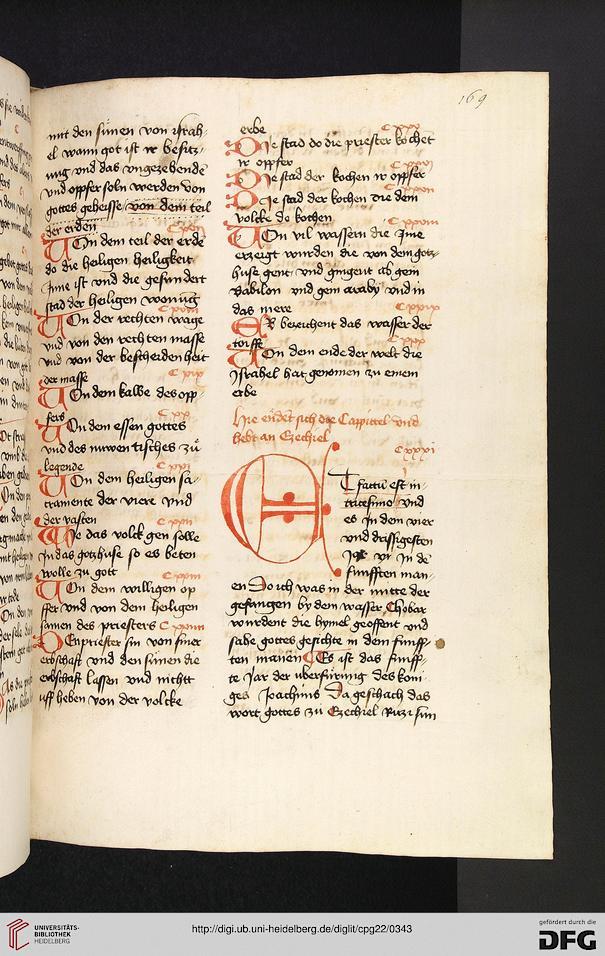 169
mit den sünen von israh-
el wann got ist ir besitz-
ung vnd das vngezebende
vnd opffer soln werden von
gottes geheisse von dem teil
der erden
Von dem teil der erde
do die heiligen heiligkeit
Inne ist vnd die gesundert
stad der heiligen wonung
C xviii
Von der rechten wage
vnd von den rechten masse
vnd von der bescheidenheit
der masse
C xix
Von dem kalbe des opp
fers
C xx
Von dem essen gottes
vnd des nuwen tisches zů
legende
C xxi
Von dem heiligen sa-
cramente der viere vnd
der vasten
C xxii
Wie das volck gen solle
In das gotzhuse so es beten
wolle zu gott
C xxiii
Von dem willigen op
ffer vnd von dem heiligen
samen des priesters C xxiiii
Der priester sin von siner
erbschafft vnd den sünen die
erbschafft lassen vnd nicht
vff heben von der volcke
erbe
C xxv
Die stad do die priester kochet
ir oppfer
C xxvi
Die stad der kochen ir opffer
C xxvii
Die stad der kochen die dem
volcke da kochen
C xxviii
Von vil wassern die Ime
erzeigt wurden die von dem gotz-
huse gent vnd gingent gein
babilon vnd gein araby vnd in
das mere
C xxix
Er bezeichent das wasser der
touffe
C xxx
Von dem ende der welt die
Israhel hat genomen zu einem
erbe
Hie endet sich die Cappittel vnd
hebt an Ezechiel
C xxxi
ET factu est in
tricesimo vnd
es In dem vier
vnd drissigesten
Jar In de
funfften man-
en Do ich was in der mitte der
gefangen by dem wasser Chobar
wurdent die hymel geoffent vnd
sahe gottes gesichte in dem funff-
ten manen Es ist das funff-
te Jar der uberfürung des koni-
ges Joachims Da geschach das
wort gottes zu Ezechiel Buzi sun
UNIVERSITÄTS-
BIBLIOTHEK
HEIDELBERG
http://digi.ub.uni-heidelberg.de/diglit/cpg22/0343
gefördert durch die
DFG